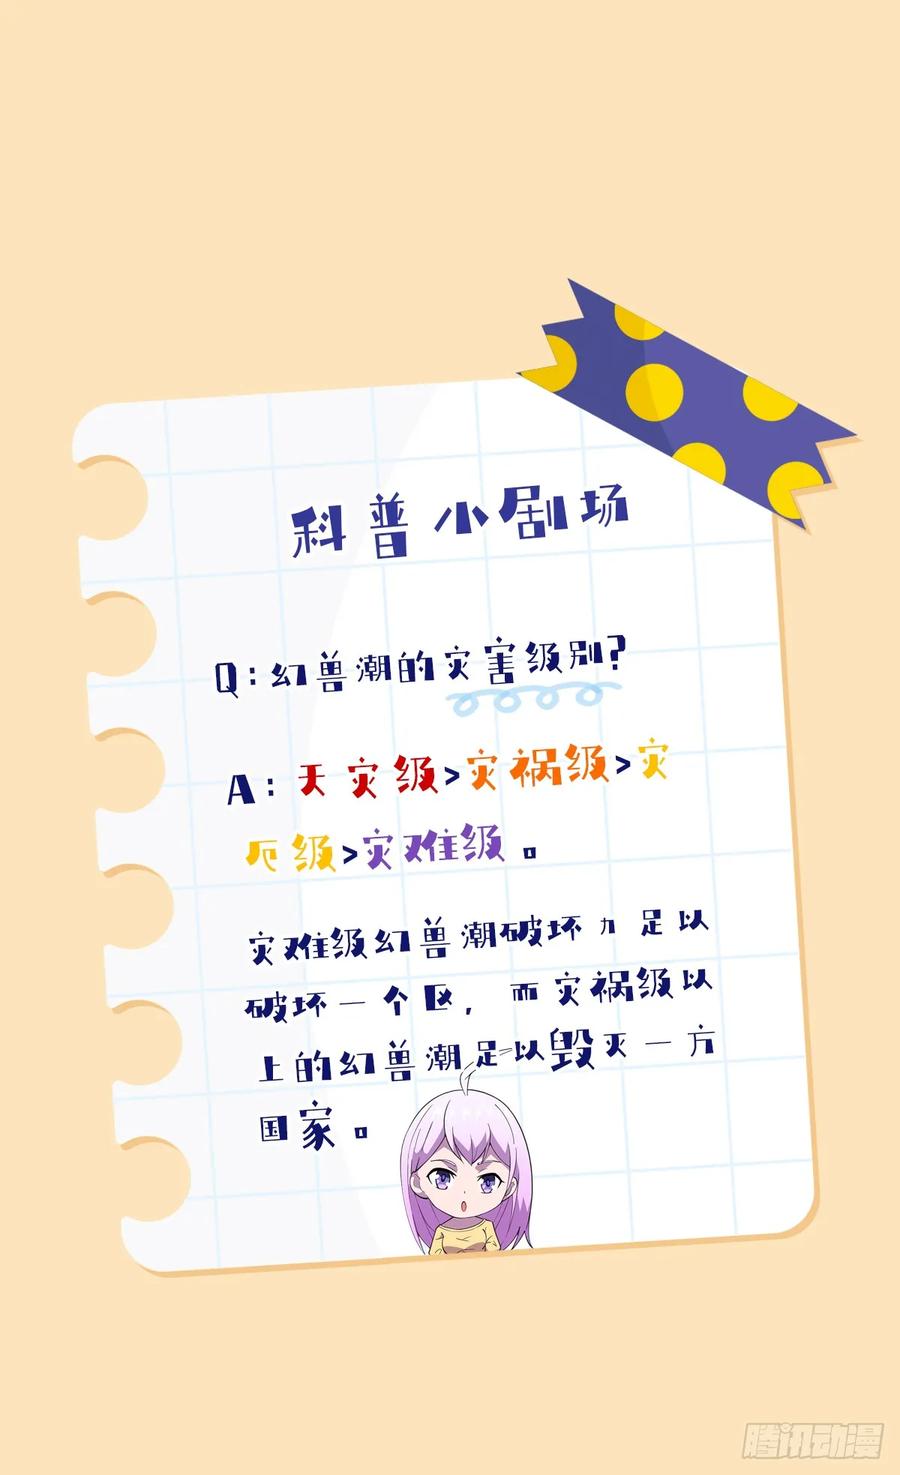 科普小剧场
Q:幻兽潮的灾害级别?
A:天灾级>灾祸级>灾
厄级>灾难级。
灾难级幻兽潮破坏力足以
破坏一个区,而灾祸级以
上的幻兽潮足以毁灭一方
国家。
腾讯动漫